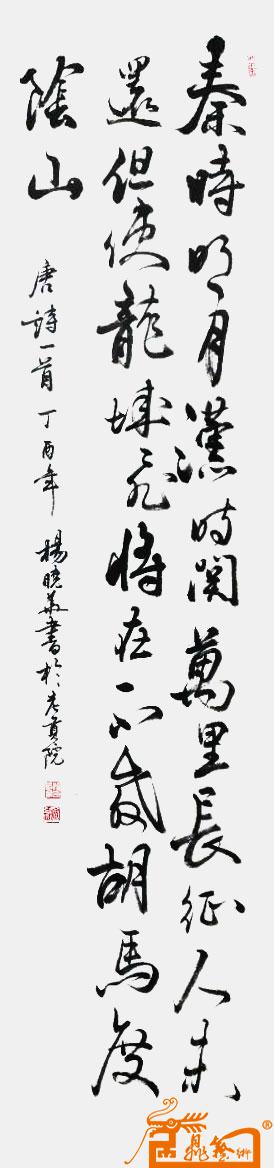 秦時明月漢時關萬里長征人未
還但使龍城飛將在不教胡馬度
陰山
唐詩一首丁酉年楊曉華書於老貢院